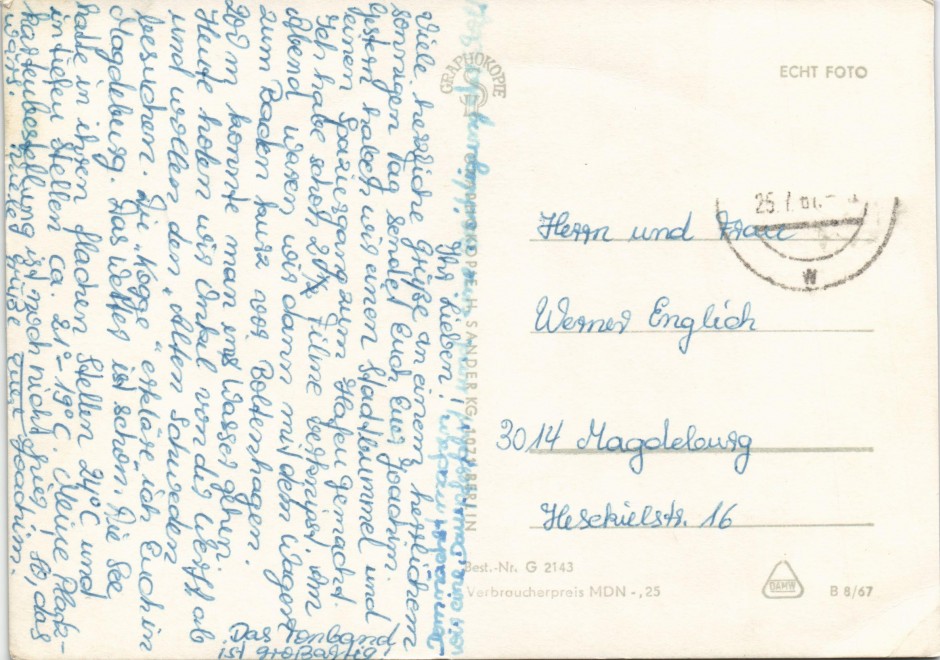 Ihr Lieben!
Viele herzliche Grüße an einem herrlichem
sonnigen Tag sendet Euch Euer Jochim.
Gestern haben wir einen Stadtbummel und
einen Spaziergang zum Hafen gemacht.
Ich habe schon 2 Filme verknipst. Am
Abend waren wir dann mit dem Wagen
zum Baden kurz vor Boltenhagen.
200 m konnte man ins Wasser gehen.
Heute holen wir Onkel von der Werft ab
und wollen den „Alten Schweden"
besuchen. Die „Kogge" erkläre ich Euch in
Magdeburg. Das Wetter ist schön. Die See
hatte in ihren flachen Stellen 24°C und
in tiefen Stellen ca. 21°-19°C. Meine Platz-
kartenbestellung ist noch nicht
Viele Grüße Euer Joachim.
Das Tonband
ist großartig!
GRAPHOKOPIE
GRAPHOKOPIE H. SANDER KG, 1071 BERLIN
ECHT FOTO
25.7.
W
Herrn und Frau
Werner Englich
3014 Magdeburg
Hesekielstr. 16
Best.-Nr. G 2143
Verbraucherpreis MDN -,25
DAMW
B 8/67